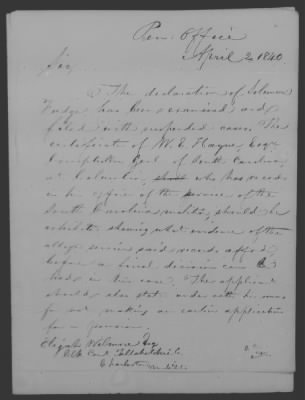 Pen: Office
April 2 1840
Sir,
The declaration of Solomon
Fudge has been examined and
filed with suspended cases. The
certificate of W. E. Hayne Esqr
Comptroller Genl of South Carolina
at Columbia, who has records
in his office of the service of the
South Carolina militia, should be
exhibited, showing what evidence of the
alleged services said records afford,
before a final decision can be
had in his case. The applicant
should also state under oath his reasons
for not making an earlier application
for a pension.
Elijah Esq
Clk Court
Charleston